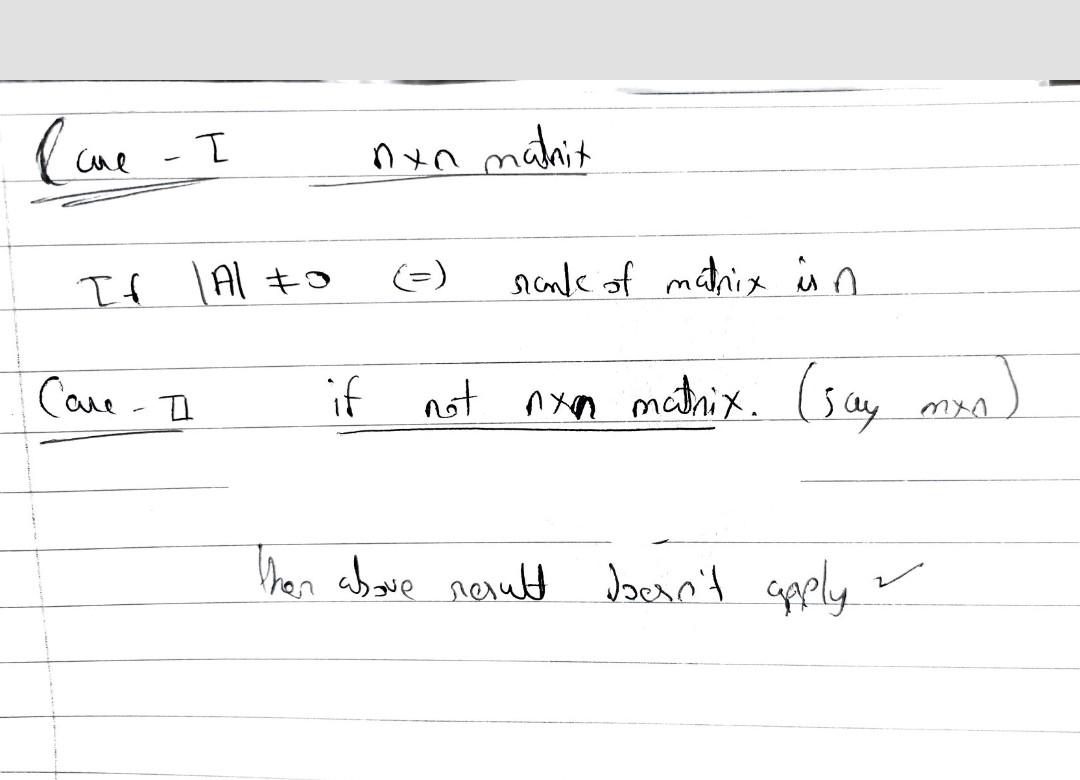 Case - I n×n matrix
If |A| ≠ 0 (=) rank of matrix is n
Case - II if not n×n matrix. (say m×n)
then above result doesn't apply ✓